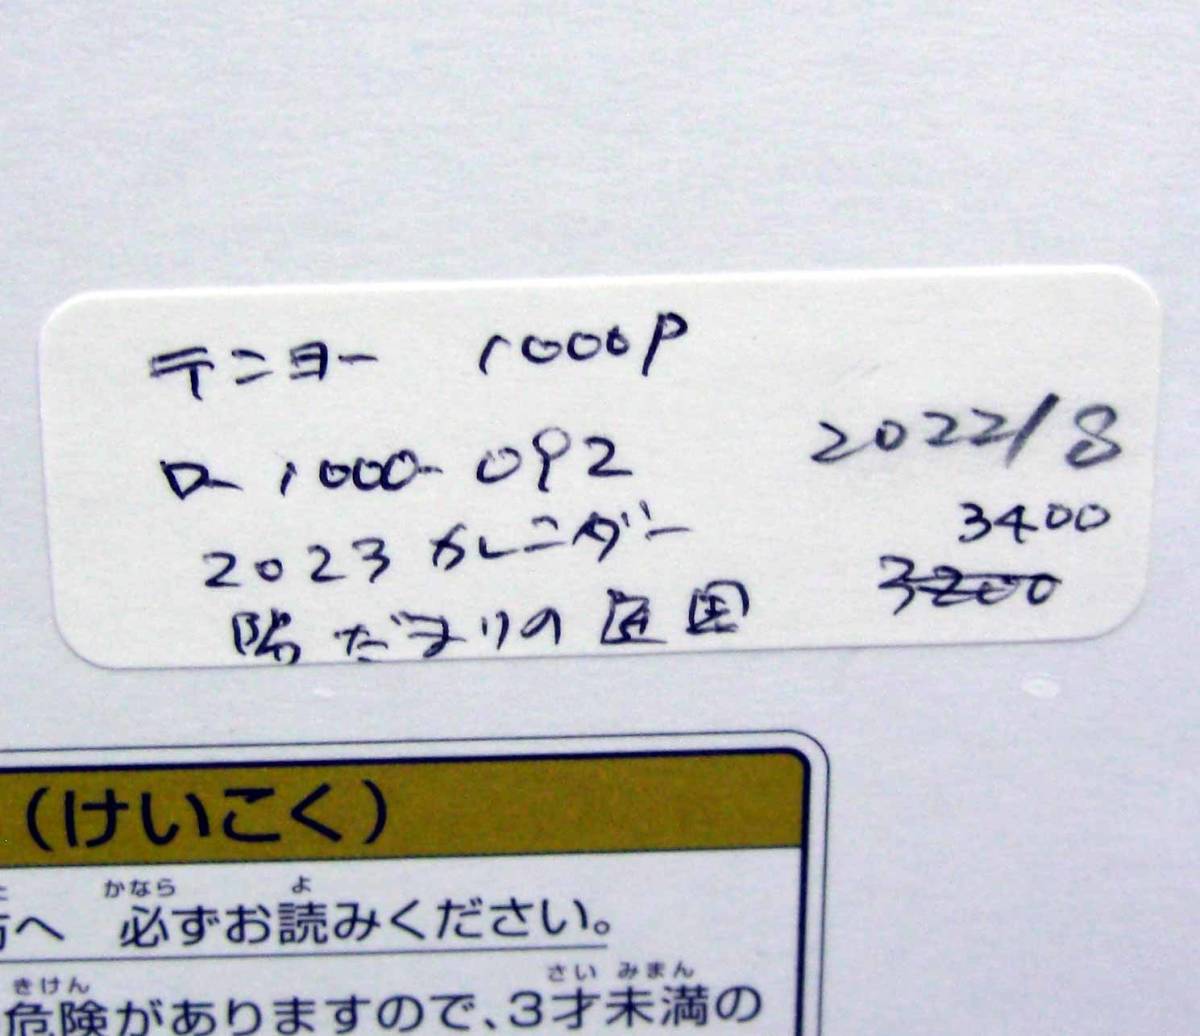 テンヨー 1000P
D-1000-092
2022/8
2023 カレンダー
3400
陽だまりの庭園
3200
(けいこく)
かなら よ
へ 必ずお読みください。
きけん さい みまん
危険がありますので、3才未満の